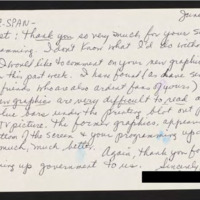 June
C-SPAN-
st: Thank you so very much for your s
amming. I don't know what I'd do witho
I would like to comment on your new graphics
this past week. I have found (as have s
friends who are also ardent fans of yours)
new graphics are very difficult to read a
blue bars under the printing blot out p
picture. The former graphics, appear
tion of the screen & your programming up
much, much better.
Again, thank you fo
ing up government to us. Sincerely